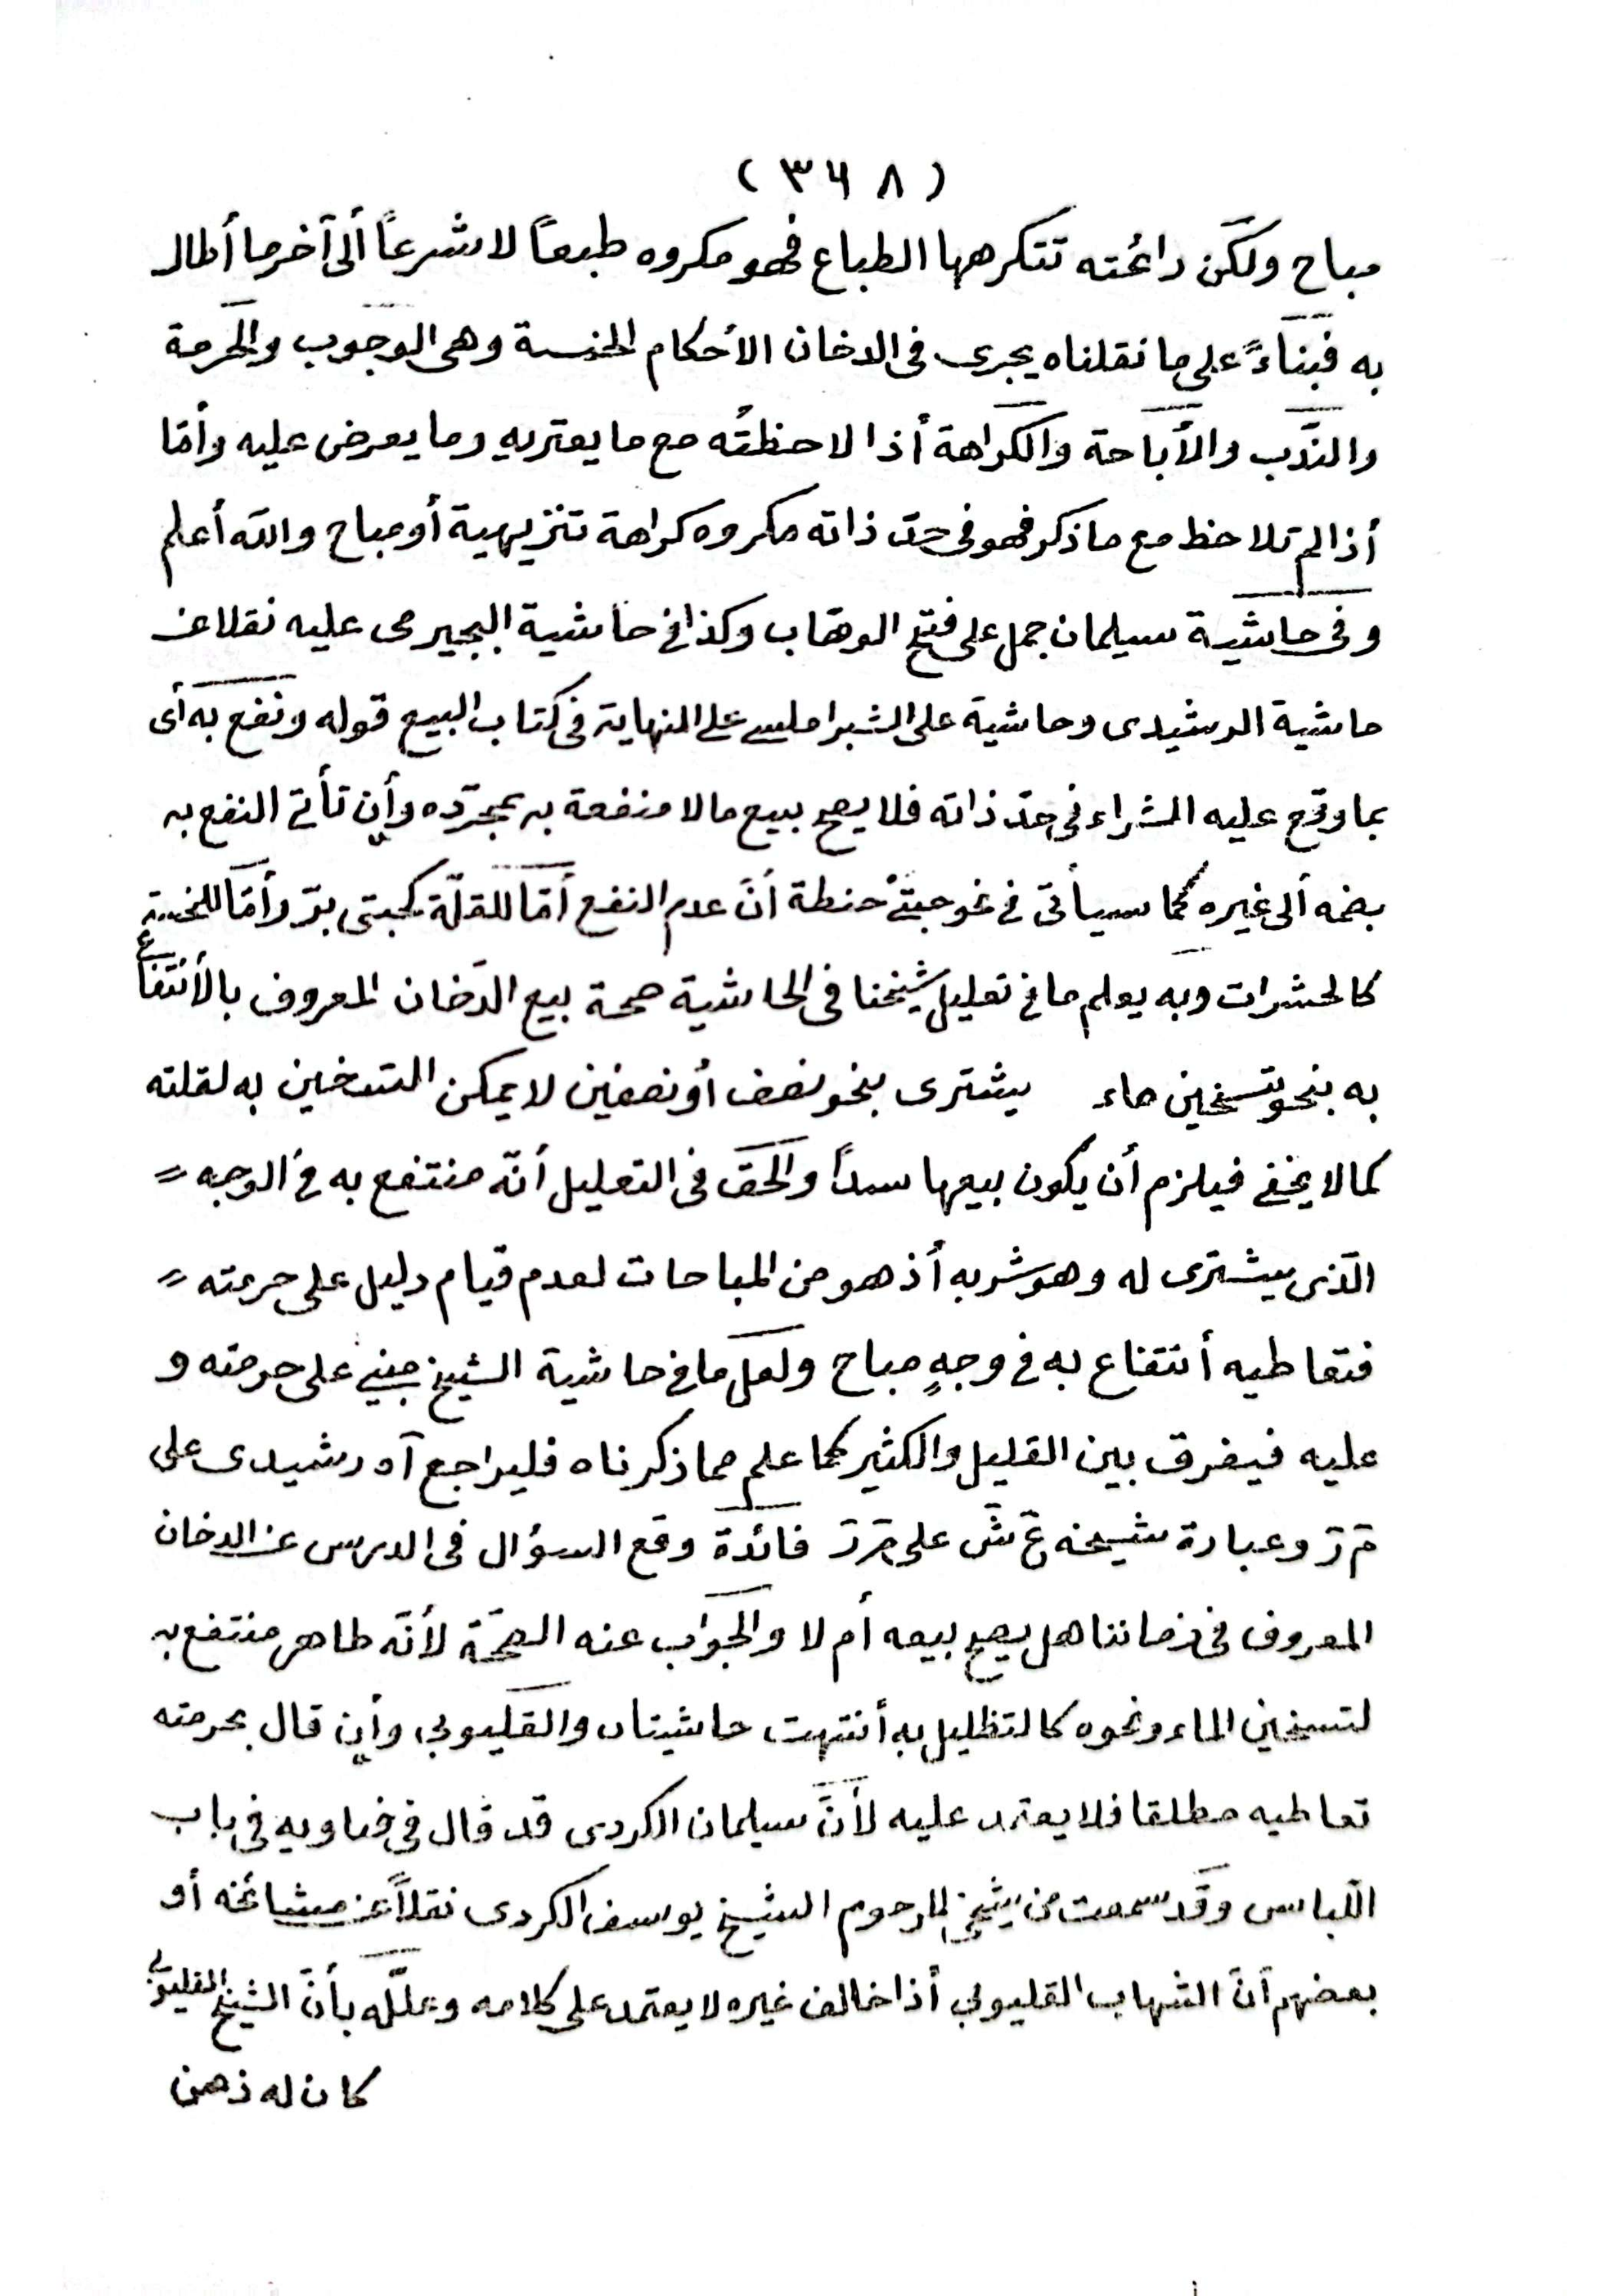 (٣٦٨)
مباح ولكن رائحته تتكرهها الطباع فهو مكروه طبعاً لا شرعاً ألى آخر ما أطال
به فبناءً على ما نقلناه يجرى فى الدخان الأحكام الخمسة وهى الوجوب والحرمة
والندب والأباحة والكراهة أذا لاحظتُه مع ما يعتريه وما يعرض عليه وأمّا
أذا لم تلاحظ مع ما ذكر فهو فى حدّ ذاته مكروه كراهة تنزيهية أو مباح والله أعلم
وفى حاشية سيلمان جمل على فتح الوهّاب وكذا فى حاشية البجيرمى عليه نقلا عن
حاشية الرشيدى وحاشية على الشبراملسى على النهاية فى كتاب البيع قوله ونفع به أى
بما وقع عليه الشراء فى حدّ ذاته فلا يصح بيع ما لا منفعة به بمجرّده وأن تأتى النفع به
بضمه ألى غيره كما سيأتى فى نحو حبتىْ حنطة أنّ عدم النفع أمّا للقلّة كحبتى برّ وأمّا للخسة
كالحشرات وبه يعلم ما فى تعليل شيخنا فى الحاشية صحة بيع الدّخان المعروف بالأنتفاع
به بنحو تسخين ماء يشترى بنحو نصف أو نصفين لا يمكن التسخين به لقلته
كما لا يخفى فيلزم أن يكون بيعها سداً والحق فى التعليل أنّه منتفع به فى الوجه =
الّذى يشترى له وهو شربه أذ هو من المباحات لعدم قيام دليل على حرمته =
فتعاطيه أنتفاع به فى وجهٍ مباح ولعل ما فى حاشية الشيخ مبنى على حرمته و
عليه فيفرق بين القليل والكثير كما علم مما ذكرناه فليراجع آه رشيدى على
م ر وعبارة شيخه ع ش على م ر فائدة وقع السؤال فى الدرس عن الدخان
المعروف فى زماننا هل يصح بيعه أم لا والجواب عنه الصحّة لأنّه طاهر منتفع به
لتسخين الماء ونحوه كالتظليل به أنتهت حاشيتان والقليوبى وأن قال بحرمته
تعاطيه مطلقا فلا يعتمد عليه لأنّ سيلمان الكردى قد قال فى فتاويه فى باب
اللّباس وقد سمعت من شيخى المرحوم الشيخ يوسف الكردى نقلاً عن مشائخه أو
بعضهم أنّ الشهاب القليوبى أذا خالف غيره لا يعتمد على كلامه وعلّله بأنّ الشيخ القليوبى
كان له ذهن